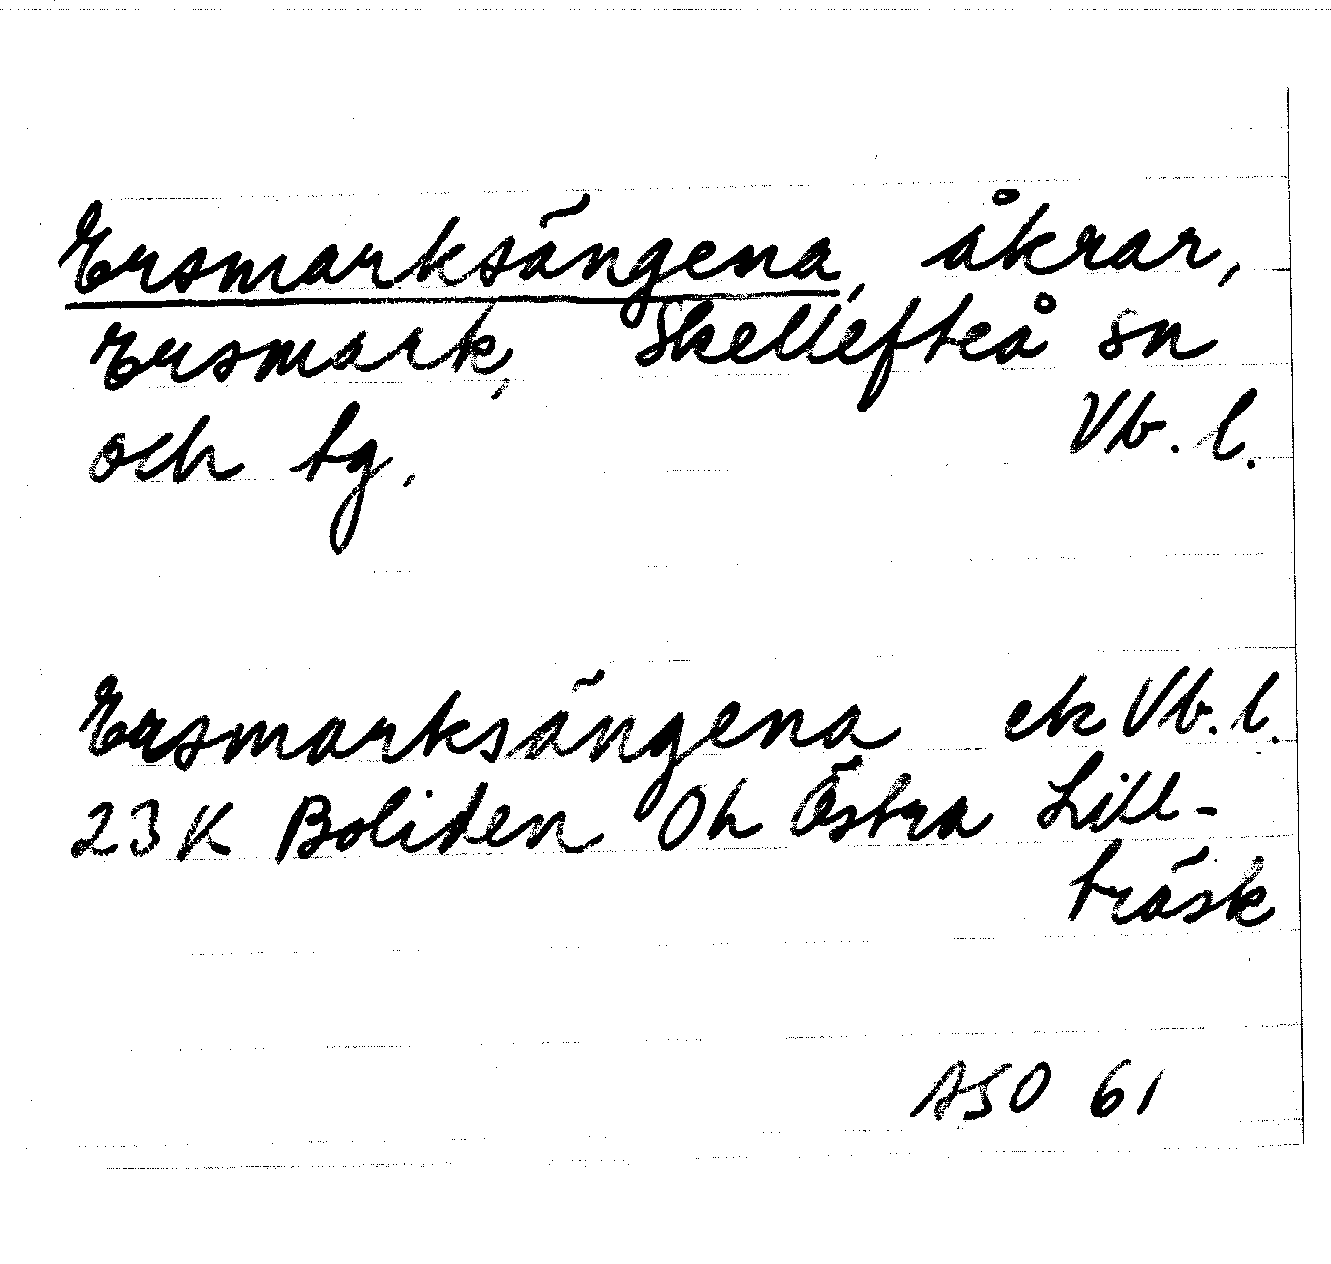 Ersmarksängena, åkrar,
Ersmark, Skellefteå sn
och tg. Vb. l.
Ersmarksängena ek Vb. l.
23 K Boliden Oh Östra Lill-
träsk
ASO 61